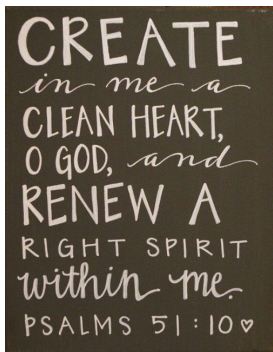 CREATE
in me a
CLEAN HEART,
O GOD, and
RENEW A
RIGHT SPIRIT
within me.
PSALMS 51:10♡